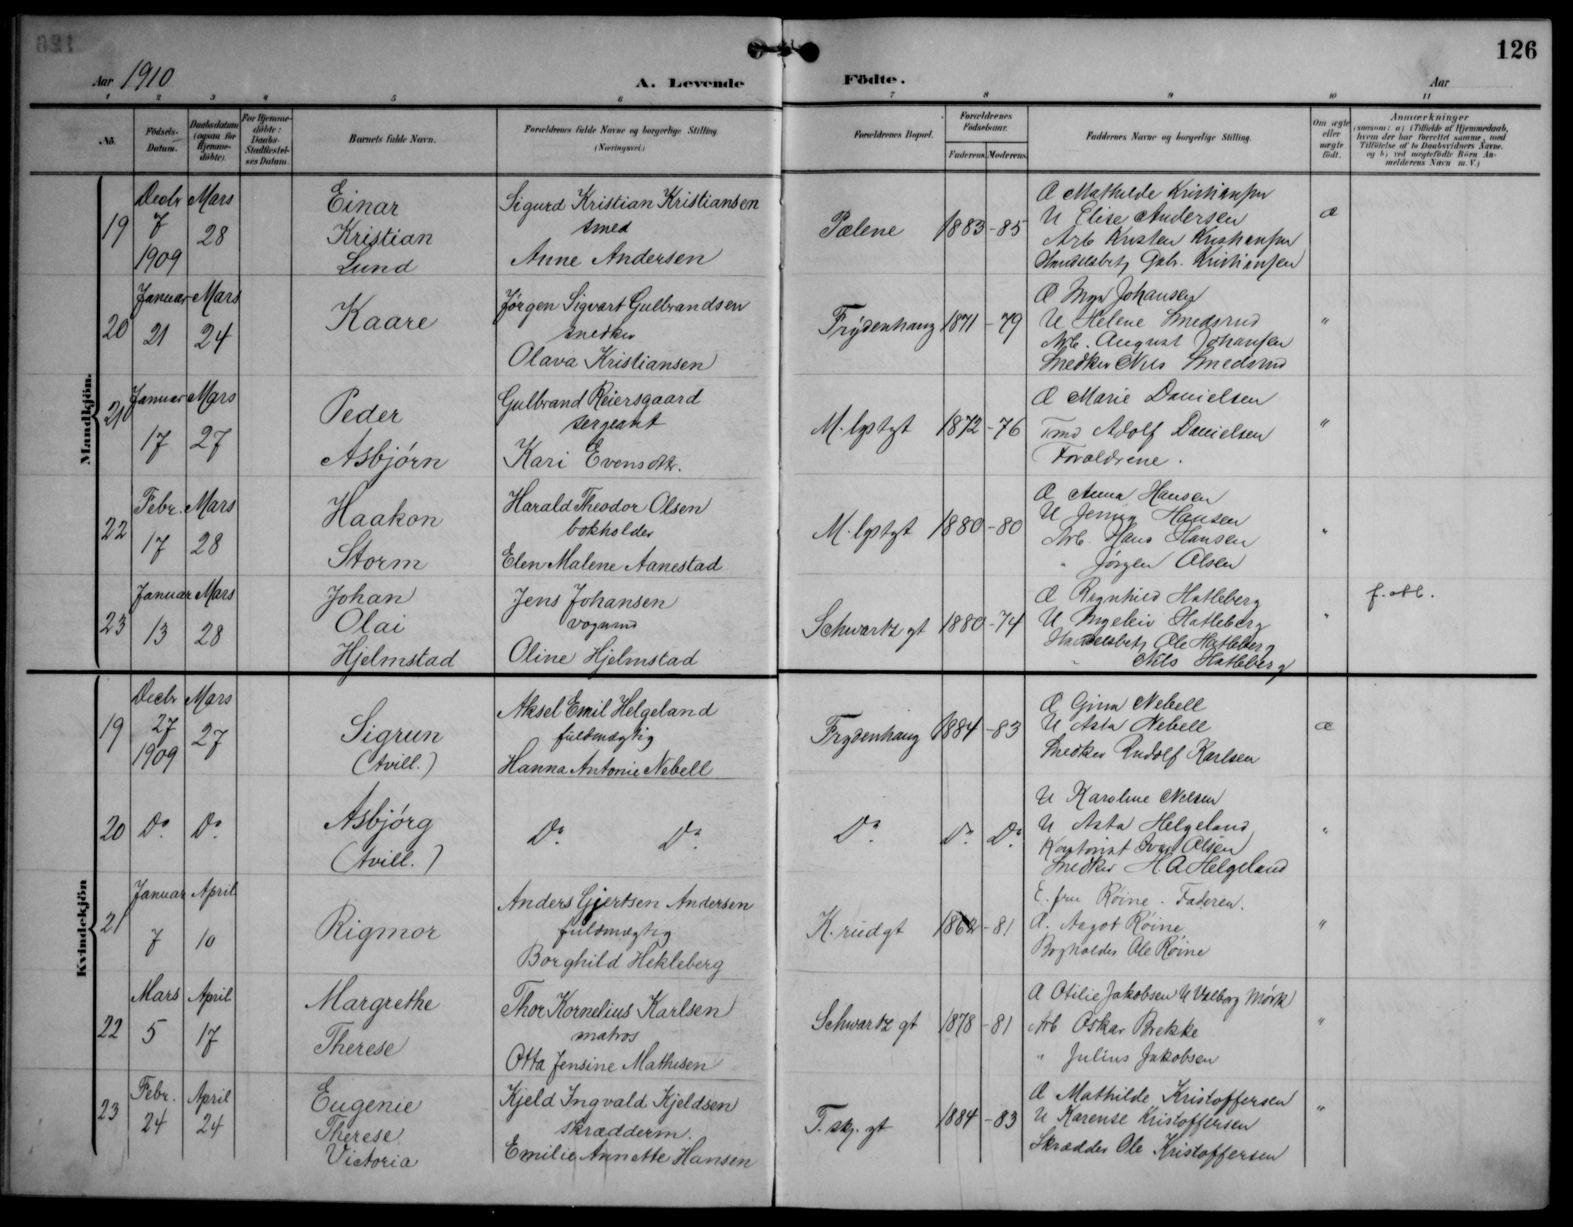 126
Aar 1910
A. Levende Födte.
Aar
1 2 3 4 5 6 7 8 9 10 11
No.
Födsels-Datum.
Daabsdatum (ogsaa for Hjemmedöbte).
For Hjemmedöbte: Daabs-Stadfæstelses Datum.
Barnets fulde Navn.
Forældrenes fulde Navne og borgerlige Stilling. (Næringsvei.)
Forældrenes Bopæl.
Forældrenes Födselsaar.
Faderens. Moderens.
Faddernes Navne og borgerlige Stilling.
Om ægte eller uægte födt.
Anmærkninger
(saasom: a) i Tilfælde af Hjemmedaab, hvem der har forrettet samme, med Tilföielse af to Daabsvidners Navne. og b) ved uægtefödte Börn Anmelderens Navn m. V.)
Mandkjön.
19
Decbr 7 1909
Mars 28
Einar
Kristian
Lund
Sigurd Kristian Kristiansen
smed
Anne Andersen
Pælene
1883 - 85
Æ Mathilde Kristiansen
U Elise Andersen
Arb Kristen Kristiansen
Handelsbetj Gabr. Kristiansen
æ
20
Januar 21
Mars 24
Kaare
Jørgen Sigvart Gulbrandsen
snedker
Olava Kristiansen
Frydenhaug
1871 - 79
Æ Inga Johansen
U Helene Smedsrud
Arb. August Johansen
Snedker Nils Smedsrud
"
21
Januar 17
Mars 27
Peder
Asbjørn
Gulbrand Reiersgaard
sergeant
Kari Evensdtr.
M. lpstgt
1872 - 76
Æ Marie Danielsen
Tmd Adolf Danielsen
Forældrene.
"
22
Febr. 17
Mars 28
Haakon
Storm
Harald Theodor Olsen
bokholder
Elen Malene Aanestad
M. lpstgt
1880 - 80
Æ Anna Hansen
U Jenny Hansen
Arb. Hans Hansen
" Jørgen Olsen
"
23
Januar 13
Mars 28
Johan
Olai
Hjelmstad
Jens Johansen
vognmd
Oline Hjelmstad
Schwartz gt
1880 - 74
Æ Ragnhild Hatleberg
U Ingeleiv Hatleberg
Handelsbetj Ole Hatleberg
" Nils Hatleberg
"
Kvindekjön
19
Decbr 27 1909
Mars 27
Sigrun
(tvill.)
Aksel Emil Helgeland
fuldmægtig
Hanna Antonie Nebell
Frydenhaug
1884 - 83
Æ Gina Nebell
U Asta Nebell
Snedker Rudolf Karlsen
æ
20
Do. Do.
Asbjørg
(tvill.)
Do. Do.
Do.
Do. Do.
U Karoline Nelsen
U Asta Helgeland
Kontorist Ivar Olsen
Snedker H. A Helgeland
"
21
Januar 7
April 10
Rigmor
Anders Gjertsen Andersen
fuldmægtig
Borghild Hekleberg
K. rudgt
1882 - 81
E. fru Røine. Faderen.
Æ. Aagot Røine
Bogholder Ole Røine
"
22
Mars 5
April 17
Margrethe
Therese
Thor Kornelius Karlsen
matros
Otta Jensine Mathisen
Schwartz gt
1878 - 81
Æ Otilie Jakobsen U Valborg Mørk
Arb Oskar Brekke
" Julius Jakobsen
"
23
Febr. 24
April 24
Eugenie
Therese
Victoria
Kjeld Ingvald Kjeldsen
skrædderm.
Emilie Annette Hansen
T. skj. gt
1884 - 83
Æ Mathilde Kristoffersen
U Karense Kristoffersen
Skrædder Ole Kristoffersen
"